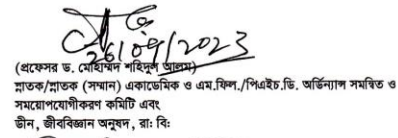 26/09/2023
(প্রফেসর ড. মোহাম্মদ শহিদুল আলম)
স্নাতক/স্নাতক (সম্মান) একাডেমিক ও এম.ফিল./পিএইচ.ডি. অর্ডিন্যান্স সমন্বিত ও
সময়োপযোগীকরণ কমিটি এবং
ডীন, জীববিজ্ঞান অনুষদ, রাঃ বিঃ